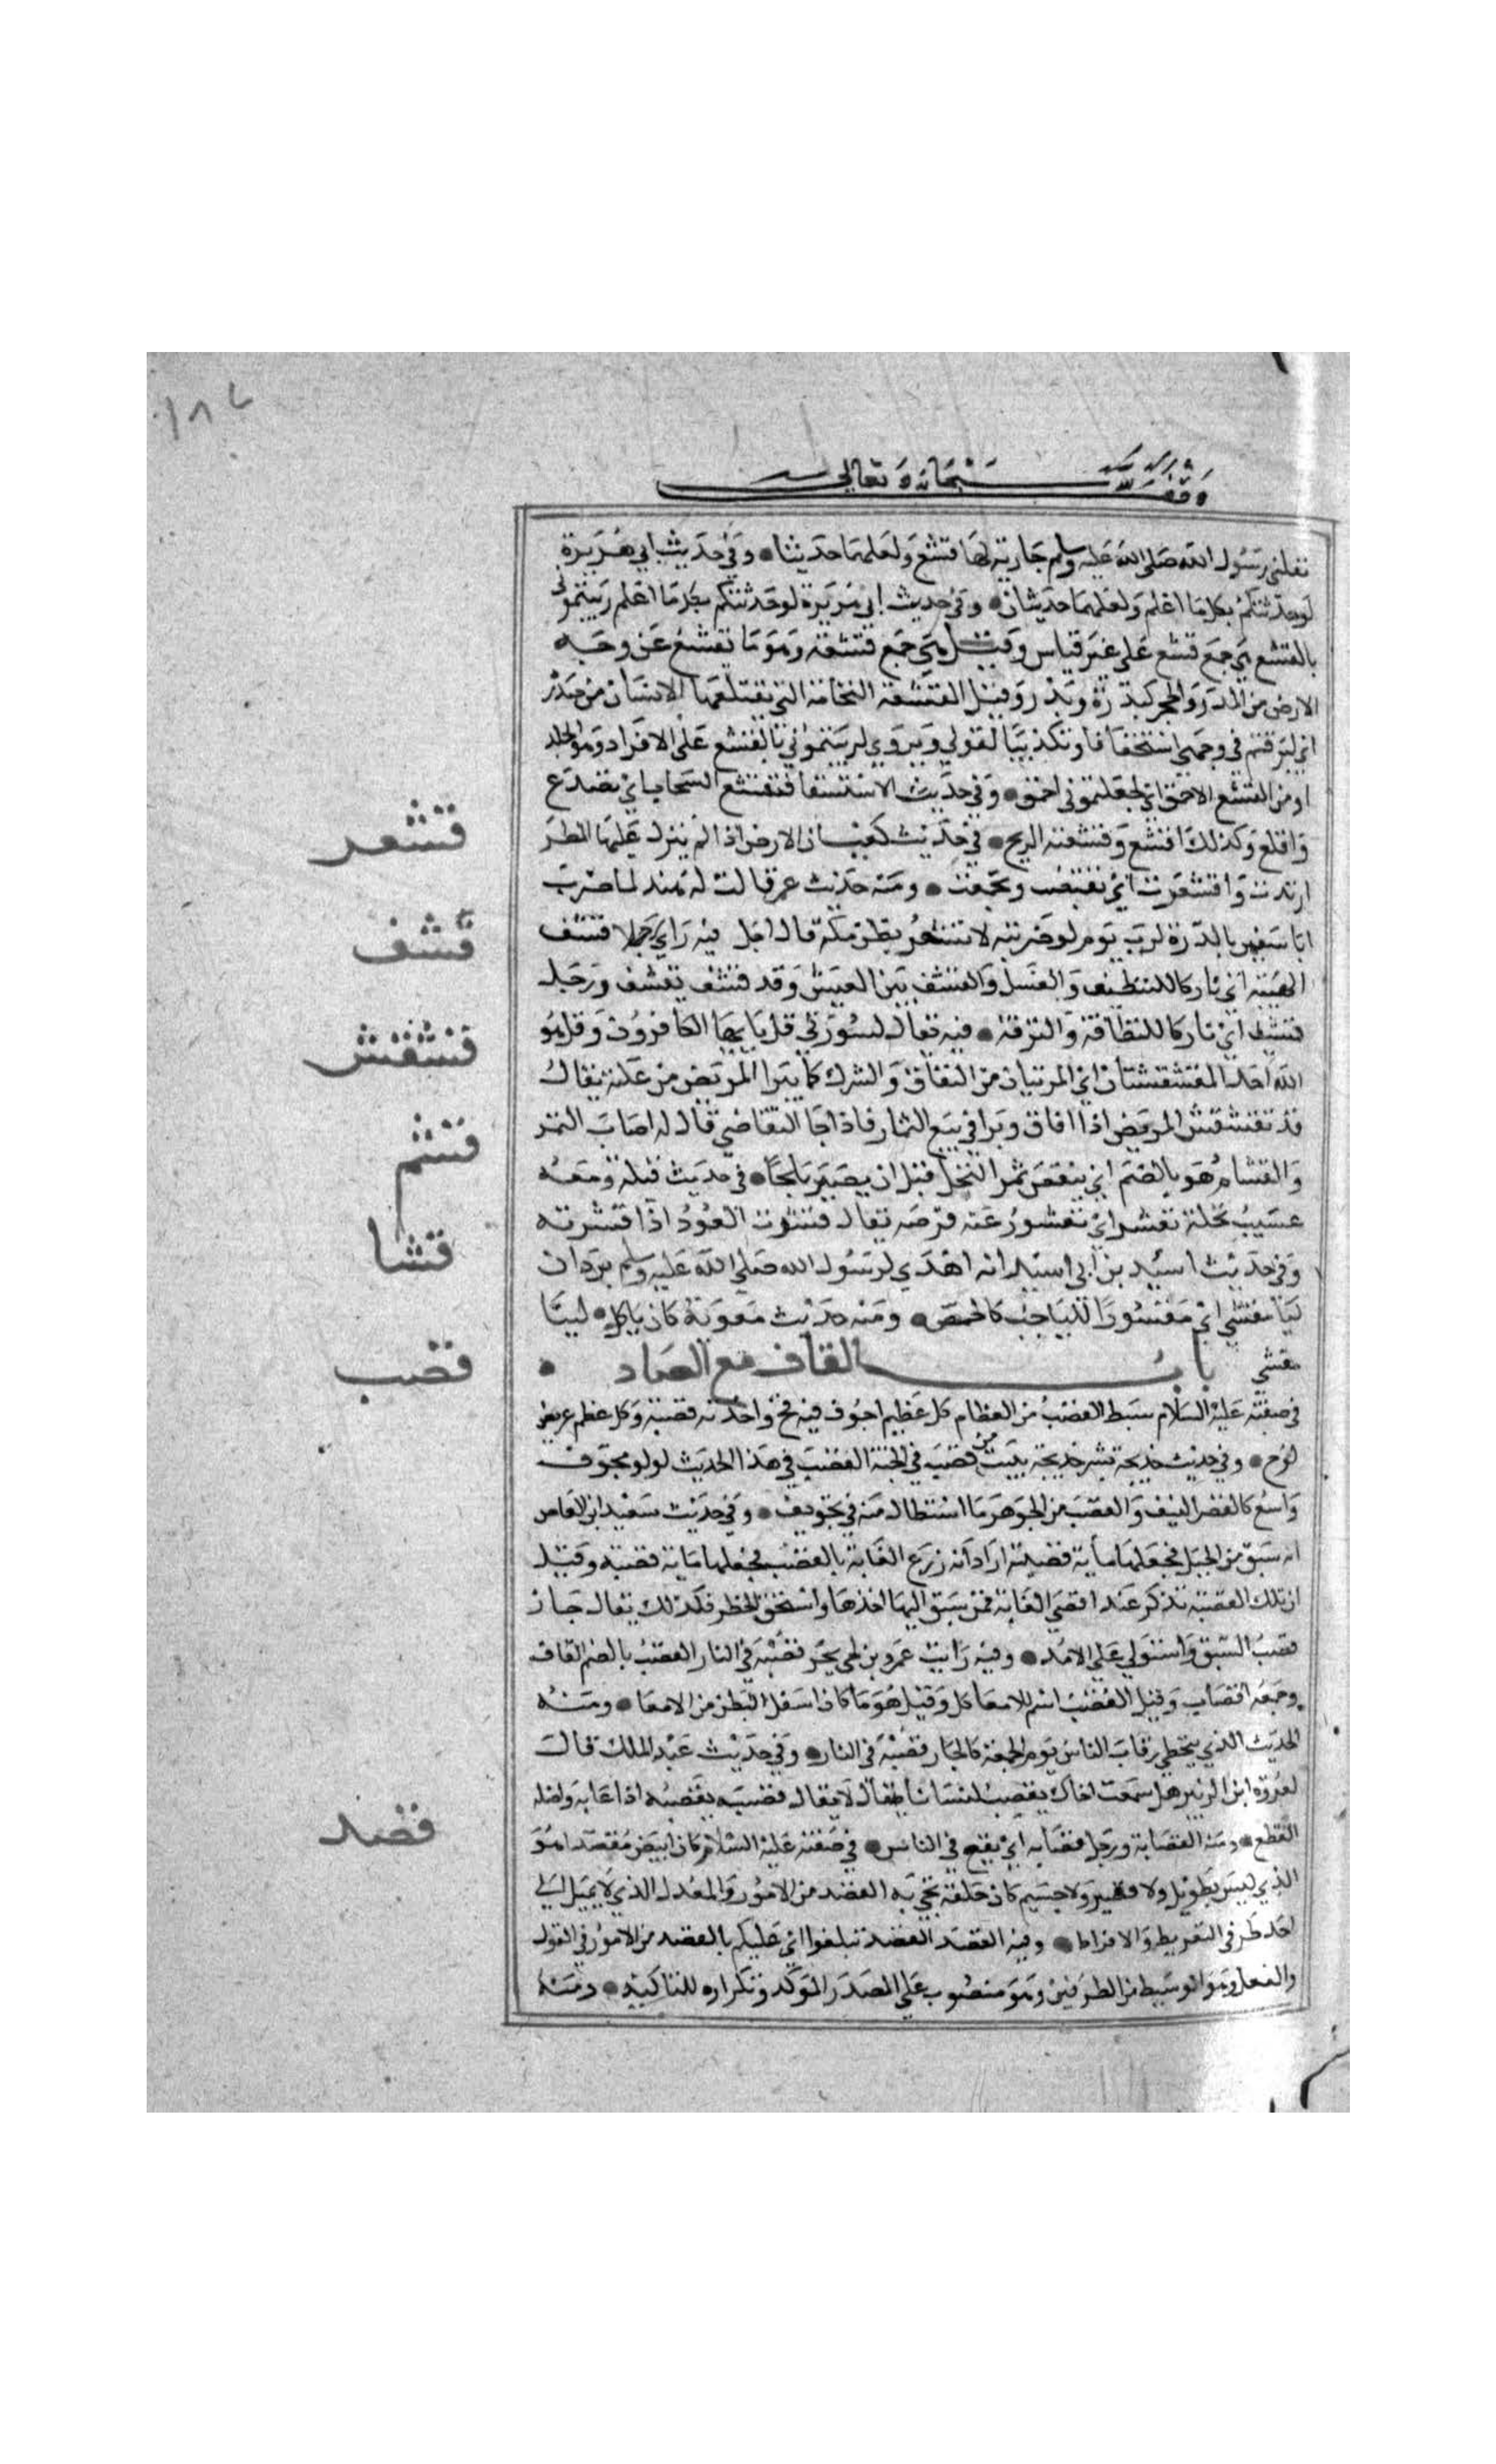 ١٨٦
وقف لله سبحانه وتعالى
نفلني رسول الله صلى الله عليه وسلم جارية لها قشع ولعلهما حديثنا وفي حديث ابي هريرة
لو حدثتكم بكل ما اعلم ولعلهما حديثان وفي حديث ابي هريرة لو حدثتكم بكل ما اعلم رميتموني
بالقشع هي جمع قشع على غير قياس وقيل هي جمع قشعة وهو ما تقشع عن وجه
الارض من المدر والحجر كبدرة وبدر وقيل القشعة النخامة التي يقتلعها الانسان من صدره
اي لبزقتم في وجهي استخفافا وتكذيبا لقولي ويروى لرميتموني بالقشع على الافراد وهو الجلد
او من القشع الاحمق اي لجعلتموني احمق وفي حديث الاستسقا فتقشع السحاب اي تصدع
واقلع وكذلك اقشع وقشعته الريح في حديث كعب ان الارض اذا لم ينزل عليها المطر
اربدت واقشعرت اي تقبضت وتجمعت ومنه حديث عمر قالت له هند لما ضرب
ابا سفين بالدرة لرب يوم لو ضربته لاقشعر بطن مكة قال اجل فيه راي رجلا قشف
الهيئة اي تاركا للتنظيف والغسل والقشف يبس العيش وقد قشف يقشف ورجل
قشف اي تاركا للنظافة والترفة فيه يقال لسورتي قل يا ايها الكافرون وقل هو
الله احد المقشقشتان اي المبريتان من النفاق والشرك كما يبرا المريض من علته يقال
قد تقشقش المريض اذا افاق وبرا في بيع الثمار فاذا جا التقاضي قال له اصاب الثمر
والقشام هو بالضم ان ينتقض ثمر النخل قبل ان يصير بلحا في حديث قيلة ومعه
عسيب نخلة مقشو اي مقشور عنه خوصه يقال قشوت العود اذا قشرته
وفي حديث اسيد بن ابي اسيد انه اهدى لرسول الله صلى الله عليه وسلم بودان
ليا مقشى اي مقشورا اللياحب كالحمص ومنه حديث معوية كان ياكل لبيا
مقشى باب القاف مع الصاد
في صفته عليه السلام سبط القصب من العظام كل عظيم اجوف فيه مخ واحدته قصبة وكل عظم عريض
لوح وفي حديث خديجة بشر خديجة ببيت من قصب في الجنة القصب في هذا الحديث لولو مجوف
واسع كالقصر المنيف والقصب من الجوهر ما استطال منه في تجويف وفي حديث سعيد ابن العاص
انه سبق من الخيل فجعلها ماية قصبة اراد انه زرع الغاية بالقصب فجعلها ماية قصبة وقيل
ان تلك القصبة تذكر عند اقصى الغاية فمن سبق اليها اخذها واستحق الخطر فلذلك يقال حاز
قصب السبق واستولى على الامد وفيه رايت عمرو بن لحي يجر قصبه في النار القصب بالضم القاف
وجمعه اقصاب وقيل القصب اسم للامعا كل وقيل هو ما كان اسفل البطن من الامعا ومنه
الحديث الذي يتخطى رقاب الناس يوم الجمعة كالجار قصبه في النار وفي حديث عبد الملك قال
لعروة ابن الزبير هل سمعت اخاك يقصب نسانا قال لا يقال قصبه يقصبه اذا عابه واصله
القطع ومنه القصابة ورجل قصابه اي يقع في الناس في صفته عليه السلام كان ابيض مقصدا هو
الذي ليس بطويل ولا قصير ولا جسيم كان خلقه نحي به القصد من الامور والمعدل الذي لا يميل الى
احد طرفي التفريط والافراط وفيه القصد القصد تبلغوا اي عليكم بالقصد من الامور في القول
والفعل وهو الوسيط من الطرفين وهو منصوب على المصدر الموكد وتكراره للتاكيد ومنه
قشعر
قشف
قشقش
قشم
قشا
قصب
قصد